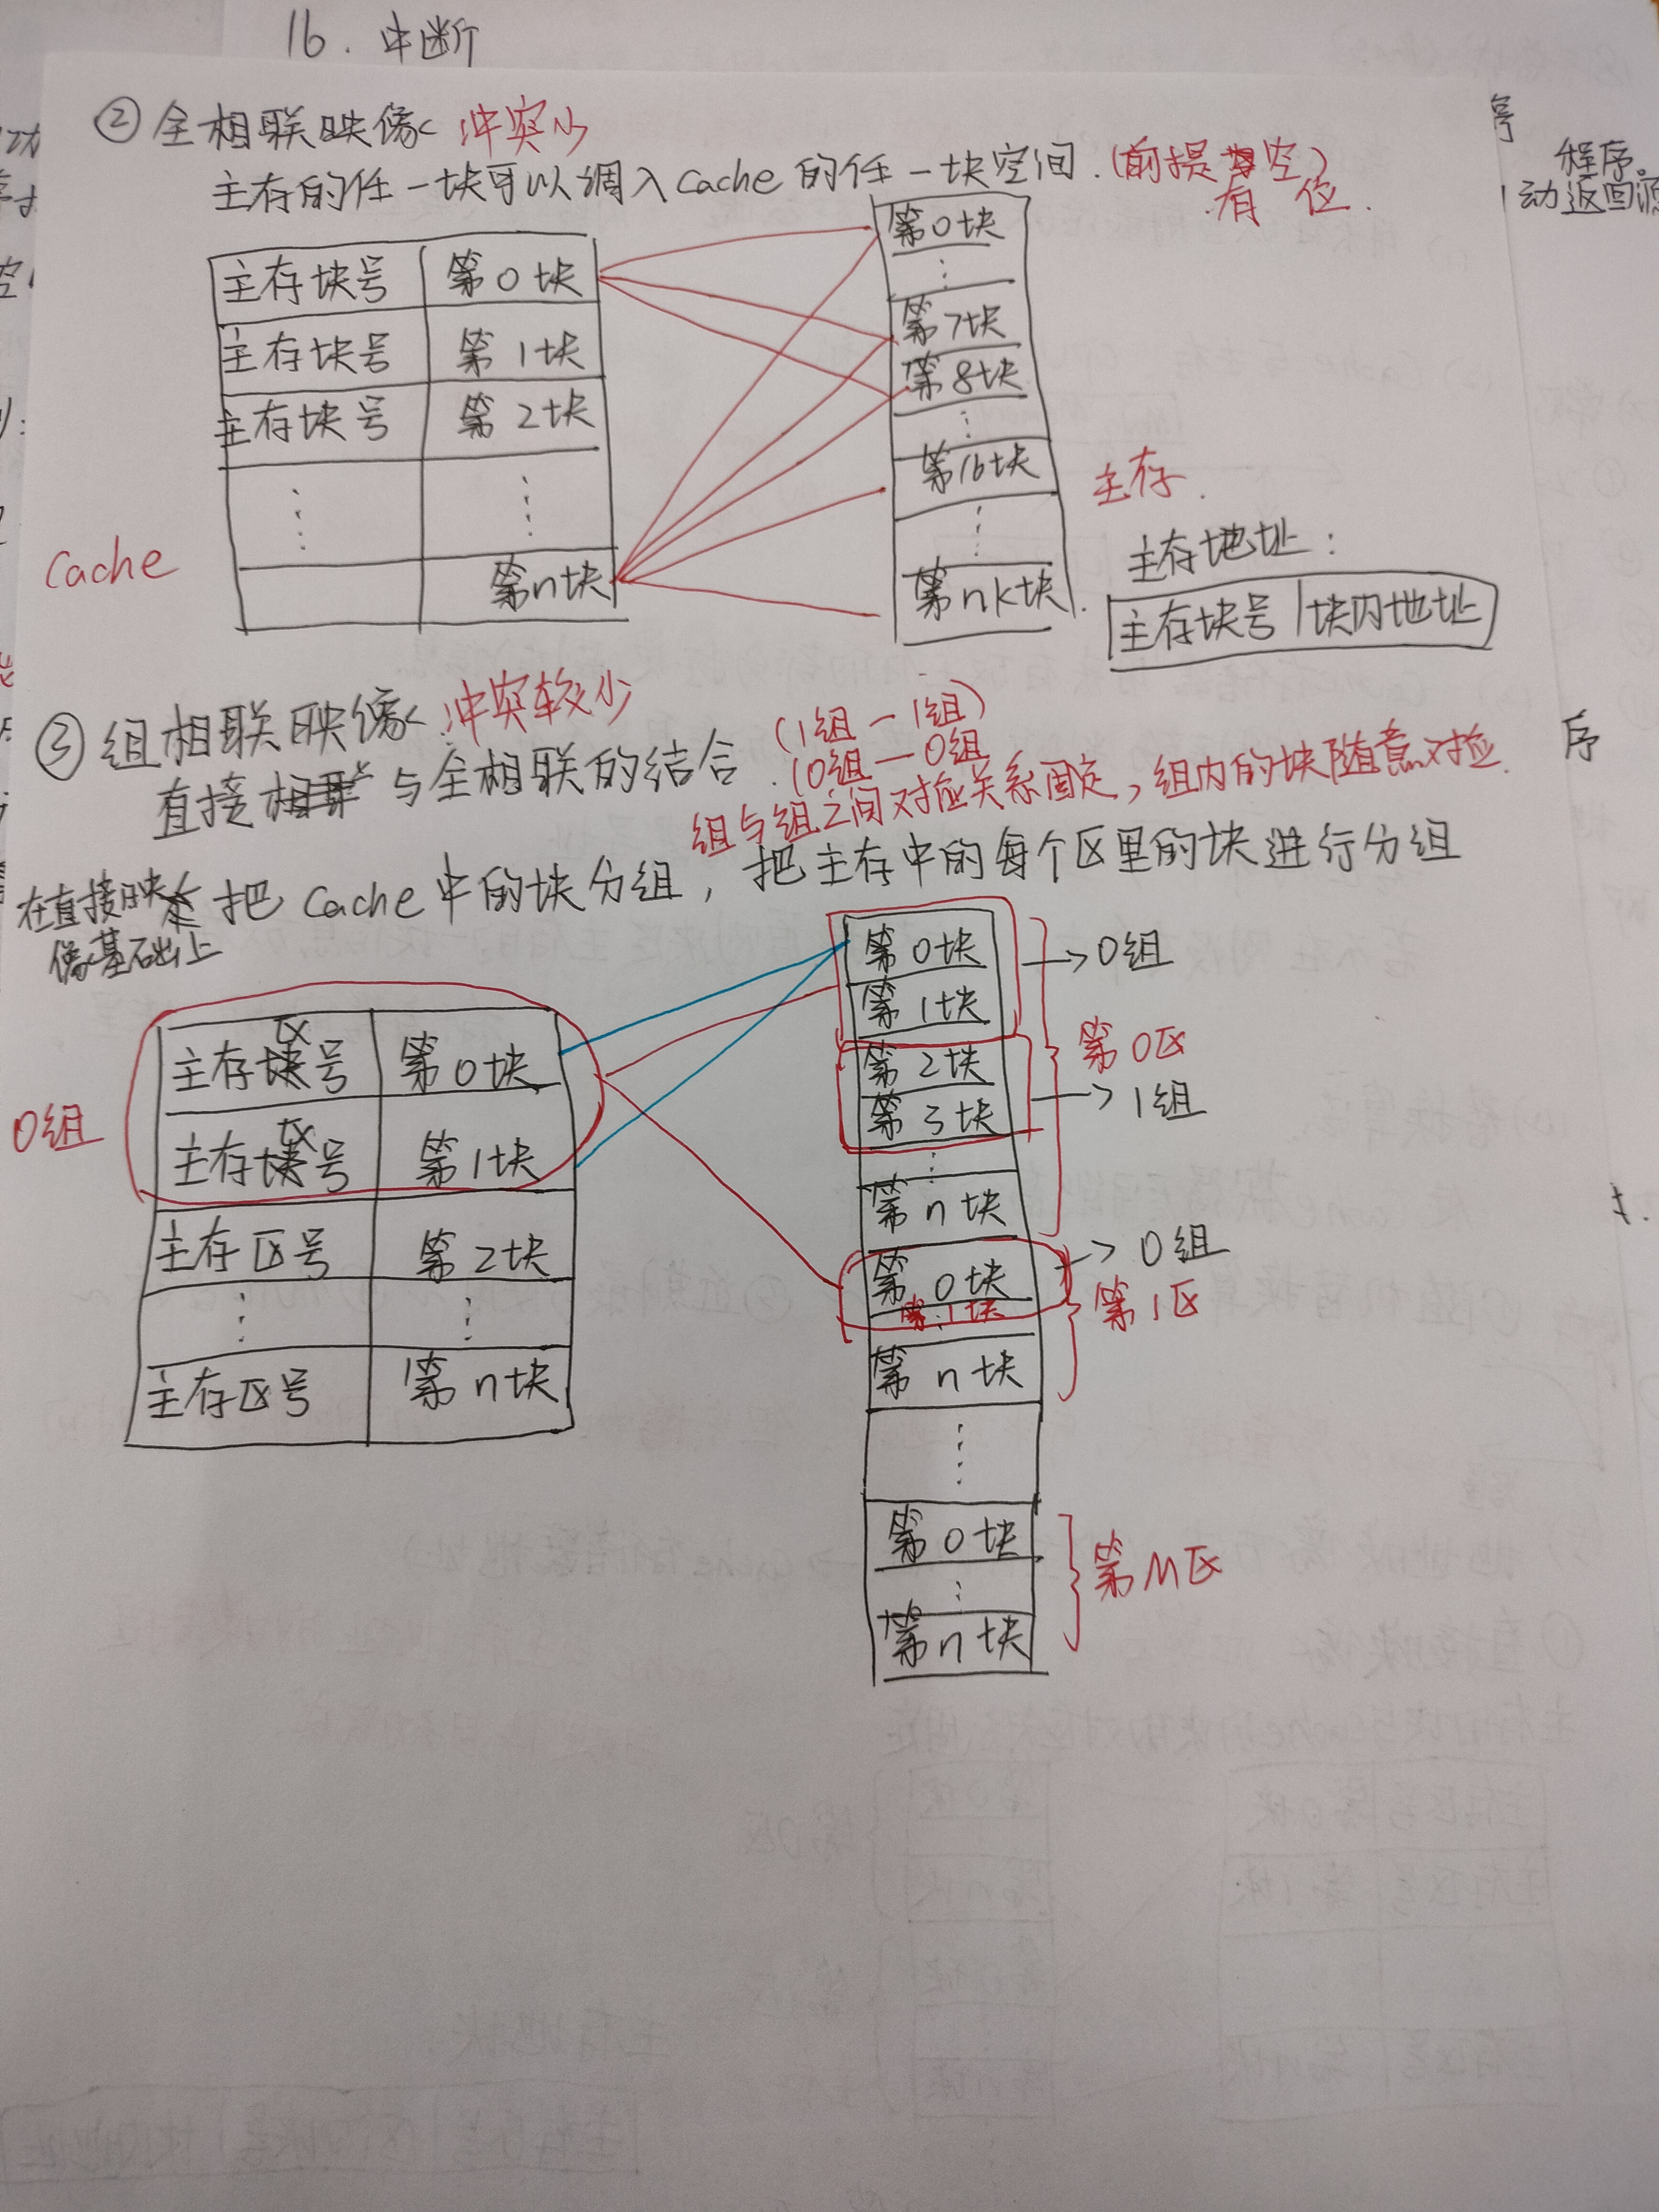 16. 中断
② 全相联映像 冲突少
主存的任一块可以调入Cache的任一块空间.(前提有空位)
程序。
动返回源
主存块号 第0块
主存块号 第1块
主存块号 第2块
⋮ ⋮
第n块
Cache
第0块
⋮
第7块
第8块
⋮
第16块
⋮
第nk块
主存.
主存地址:
主存块号 | 块内地址
③ 组相联映像 冲突较少
直接 与全相联的结合. (1组-1组)
(0组-0组
组与组之间对应关系固定,组内的块随意对应.
序
在直接映像基础上
把Cache中的块分组,把主存中的每个区里的块进行分组
0组
主存区号 第0块
主存区号 第1块
主存区号 第2块
⋮ ⋮
主存区号 第n块
第0块
第1块
→0组
第2块
第3块
→1组
⋮
第n块
第0区
第0块
第1块
→0组
第n块
第1区
⋮
第0块
⋮
第n块
第M区